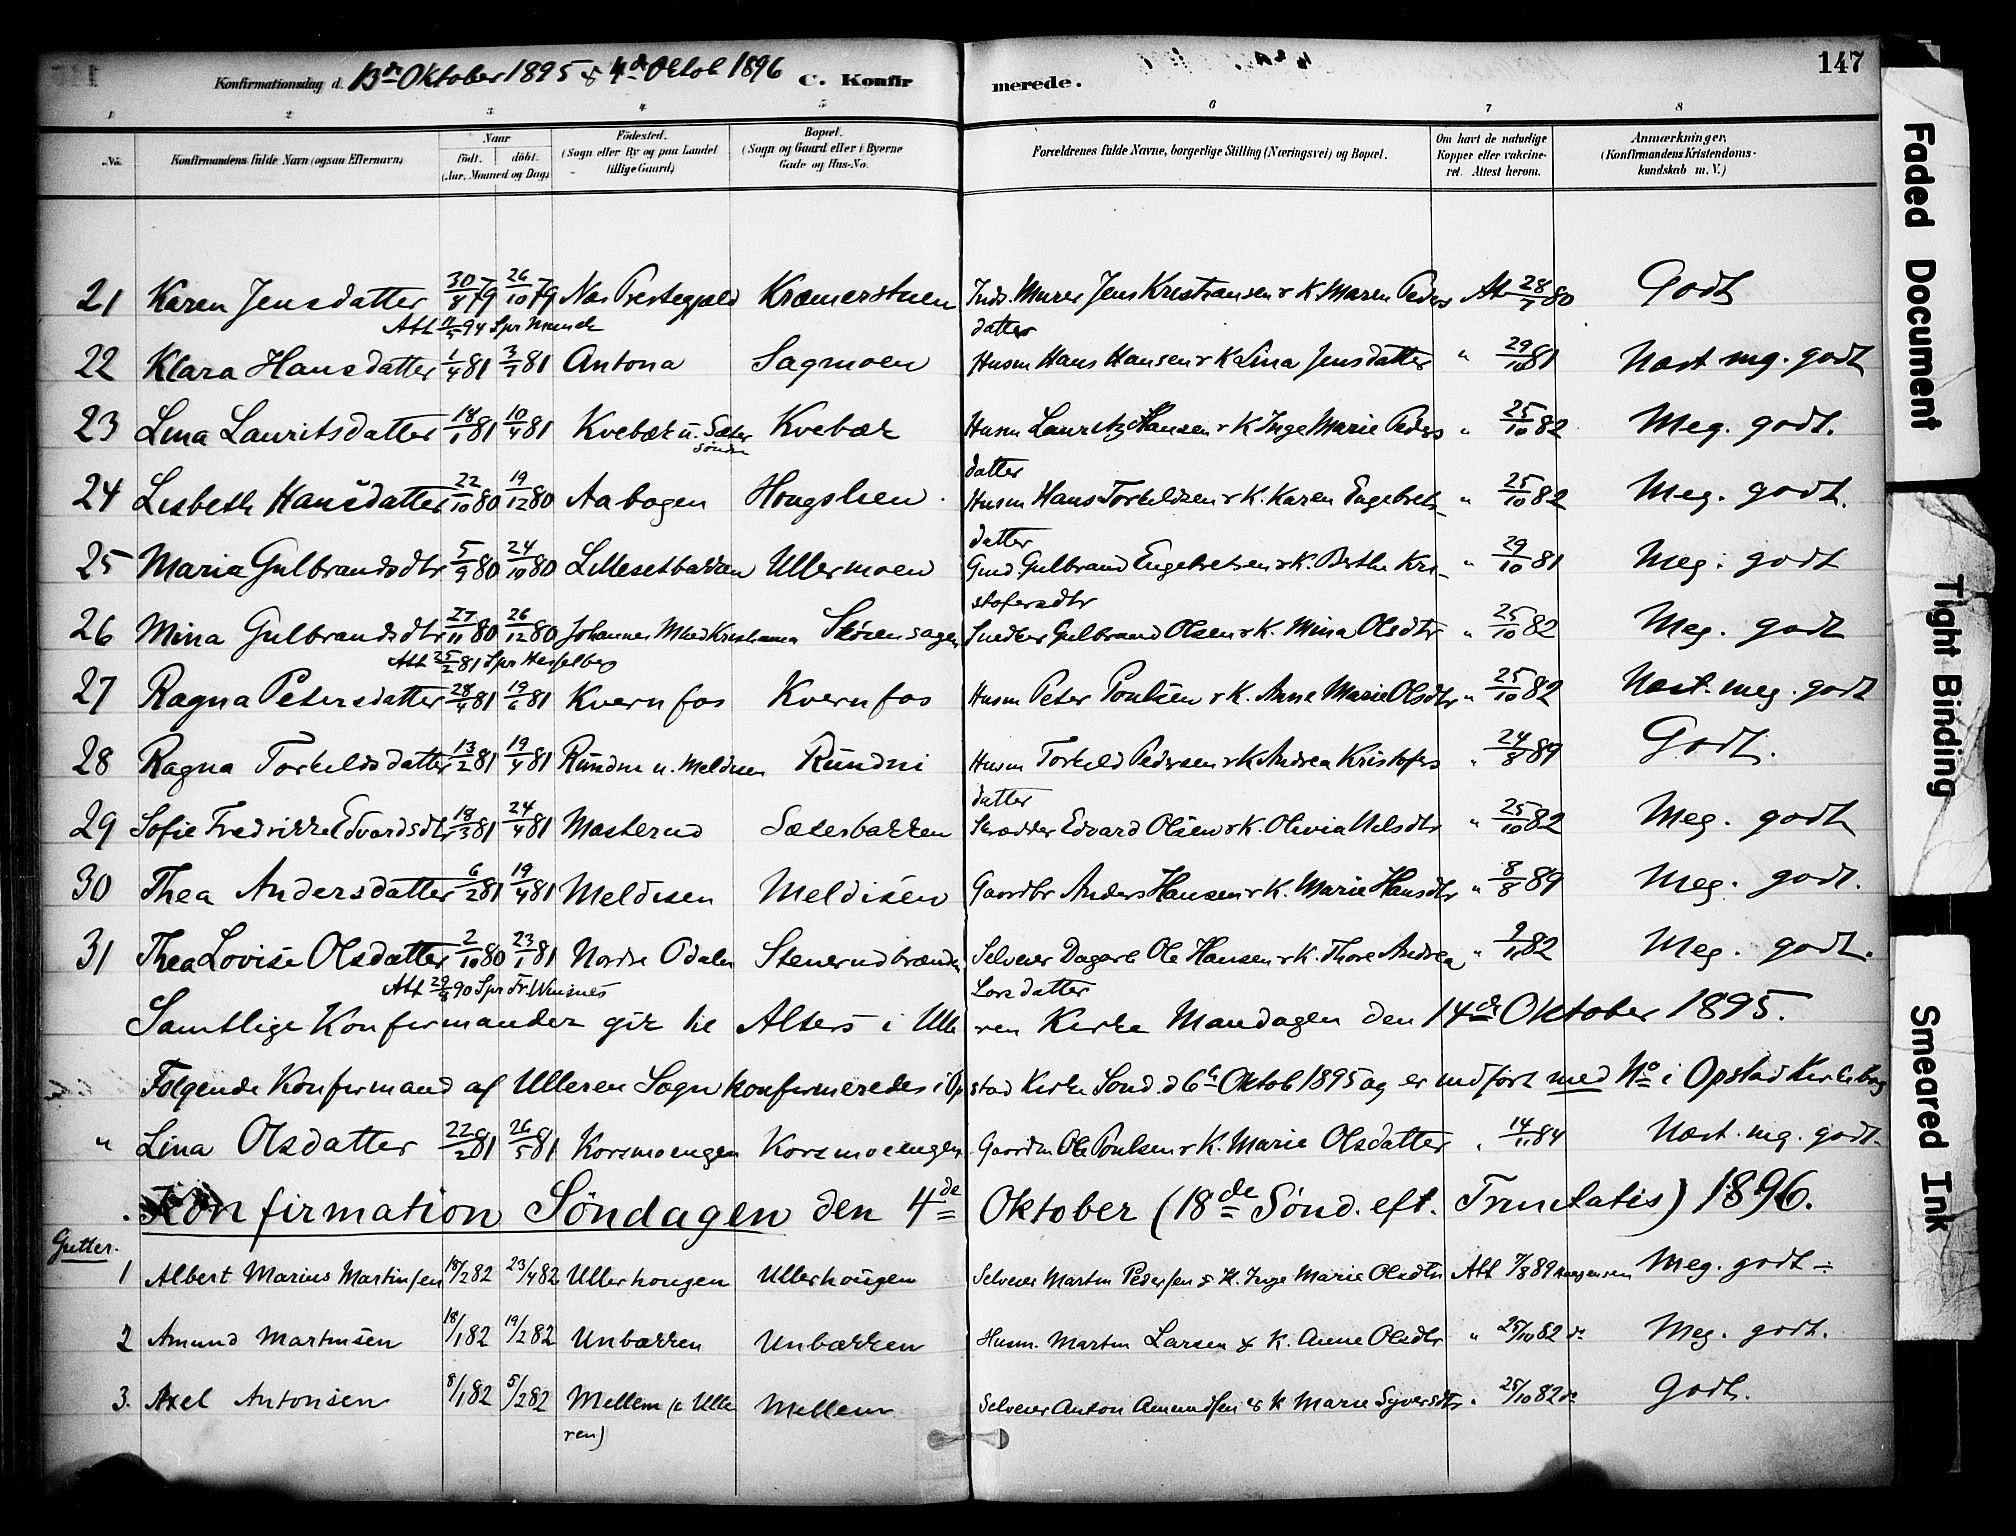 147
Konfirmationsdag d. 13de Oktober 1895 & 4de Oktob 1896 C. Konfirmerede.
1 2 3 4 5 6 7 8
No. Konfirmandens fulde Navn (ogsaa Efternavn) Naar födt. döbt. (Aar, Maaned og Dag) Födested. (Sogn eller By og paa Landet tillige Gaard) Bopæl. (Sogn og Gaard eller i Byerne Gade og Hus-No. Forældrenes fulde Navne, borgerlige Stilling (Næringsvei) og Bopæl. Om havt de naturlige Kopper eller vakcineret. Attest herom. Anmærkninger. (Konfirmandens Kristendomskundskab m. V.)
21 Karen Jensdatter 30/8 79 26/10 79 Næs Prestegjæld Kræmerstuen Inds. Murer Jens Kristiansen & K. Maren Peders Att 28/7 80 Godt
Att 11/5 94 Spr Munch datter
22 Klara Hansdatter 1/4 81 3/7 81 Antona Sagmoen Husm Hans Hansen & K Lina Jensdatter " 29/10 81 Næst mg. godt
23 Lina Lauritsdatter 18/1 81 10/4 81 Kvebæk u. Sæter Søndre Kvebæk Husm Lauritz Hansen & K Inge Marie Peders " 25/10 82 Meg. godt.
datter
24 Lisbeth Hansdatter 22/10 80 19/12 80 Aabogen Hougsluen Husm Hans Torkildsen & K. Karen Engebrets- " 25/10 82 Meg. godt.
datter
25 Maria Gulbrandsdtr 5/9 80 24/10 80 Lillesetbakken Ullermoen Gmd. Gulbrand Engebretsen & K. Berthe Kri- " 29/10 81 Meg. godt
stofersdtr
26 Mina Gulbrandsdtr 27/11 80 26/12 80 Johannes M Kristiania Skörensagen Snedker Gulbrand Olsen & K. Mina Olsdtr " 25/10 82 Meg. godt
Att 25/2 81 Spr Hesselberg
27 Ragna Petersdatter 28/4 81 19/6 81 Kvernfos Kvernfos Husm Peter Poulsen & K. Anne Marie Olsdtr " 25/10 82 Næst. meg. godt
28 Ragna Torkeldsdatter 13/2 81 19/4 81 Rundni u. Meldisen Rundni Husm Torkeld Pedersen & K Andrea Kristofers " 24/8 89 Godt.
datter
29 Sofie Fredrikke Edvardsdtr 18/3 81 24/4 81 Masterud Sæterbakken Skrædder Edvard Olsen & K. Olivia Nilsdtr " 25/10 82 Meg. godt
30 Thea Andersdatter 6/2 81 19/4 81 Meldisen Meldisen Gaardbr Anders Hansen & K. Marie Hansdtr " 8/8 89 Meg. godt.
31 Thea Lovise Olsdatter 2/10 80 23/1 81 Nordre Odalen Stenerudbraaden Selveier Ole Hansen & K. Thore Andrea " 9/11 82 Meg. godt.
Att 29/8 90 Spr Fr. Winsnes Larsdatter
Samtlige Konfirmander gik til Alters i Ulleren Kirke Mandagen den 14de Oktober 1895.
Følgende Konfirmand af Ulleren Sogn konfirmeredes i Opstad Kirke Sönd. d 6te Oktob 1895 og er indført med No i Opstad Kirkebog
" Lina Olsdatter 22/2 81 26/5 81 Korsmoengen Korsmoengen Gaardm Ole Poulsen & K. Marie Olsdatter " 14/11 84 Næst. mg. godt.
Konfirmation Söndagen den 4de Oktober (18de Sönd. eft. Trinitatis) 1896.
Gutter.
1 Albert Marius Martinsen 18/2 82 23/4 82 Ullerhougen Ullerhougen Selveier Martin Pedersen & K. Inge Marie Olsdtr Att 7/8 89 Meg. godt ÷
2 Amund Martinsen 18/1 82 19/2 82 Unbakken Unbakken Husm. Martin Larsen & K. Anne Olsdtr " 25/10 82 do Meg. godt.
3. Axel Antonsen 8/1 82 5/2 82 Mellem (i Ulleren) Mellem Selveier Anton Amundsen & K Marie Syversdtr " 25/10 82 do Godt.
Faded Document
Tight Binding
Smeared Ink